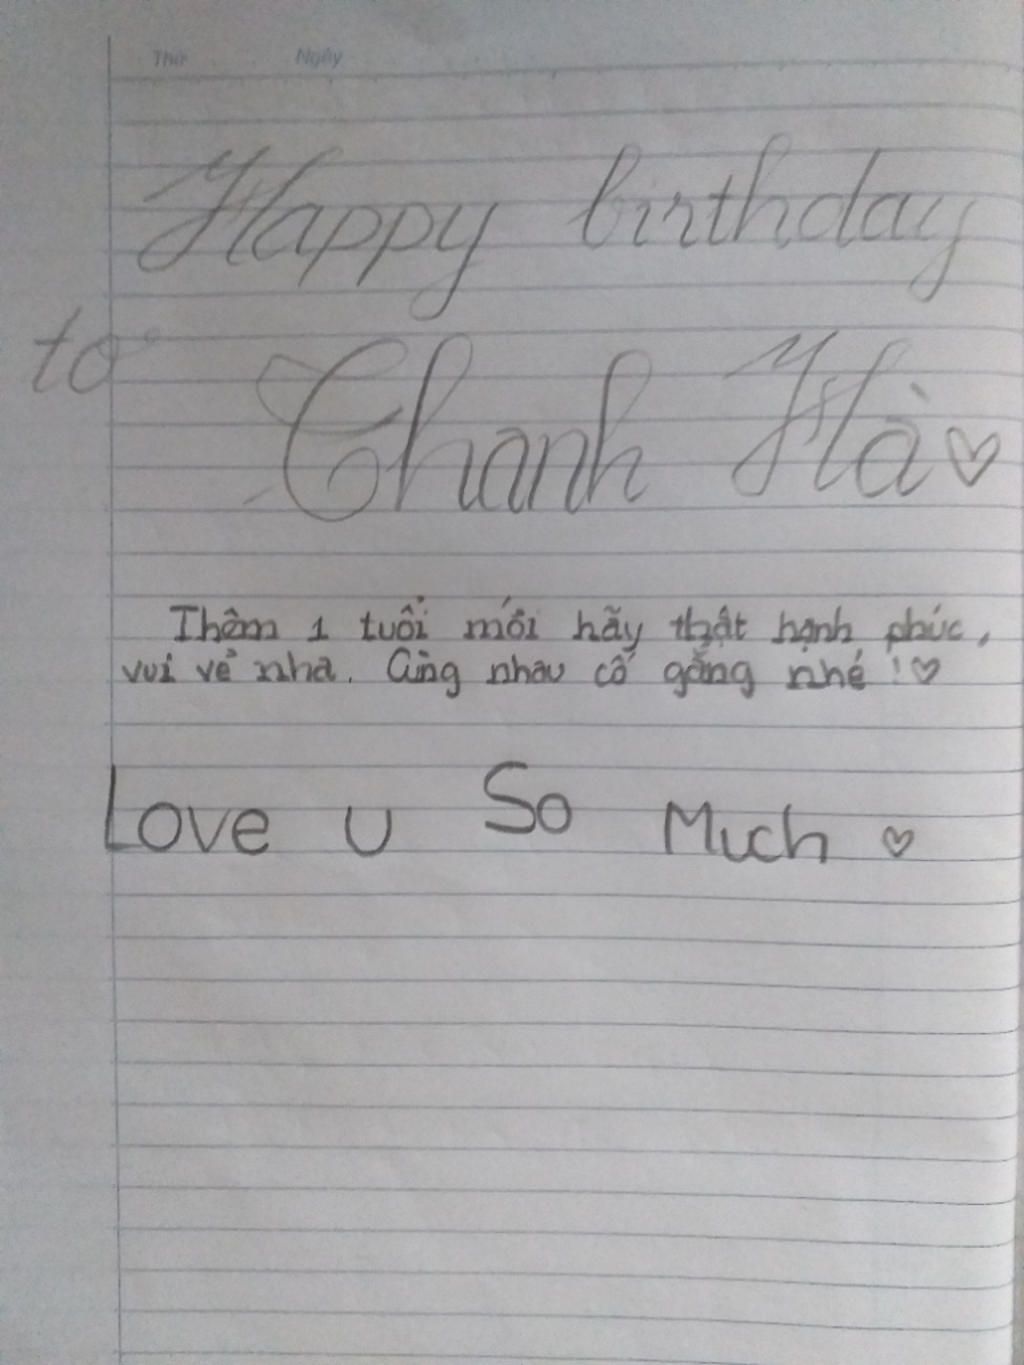 Thứ Ngày
Happy birthday
to
Thanh Hà ♡
Thêm 1 tuổi mới hãy thật hạnh phúc,
vui vẻ nha. Cùng nhau cố gắng nhé ! ♡
Love U So Much ♡